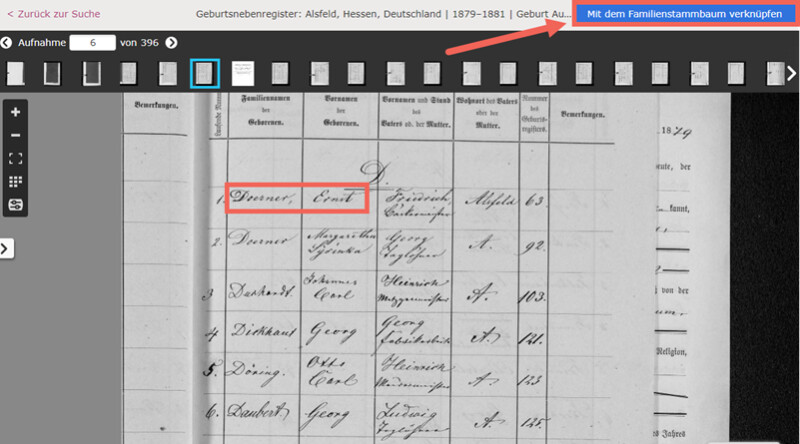 < Zurück zur Suche
Geburtsnebenregister: Alsfeld, Hessen, Deutschland | 1879–1881 | Geburt Au...
Mit dem Familienstammbaum verknüpfen
Aufnahme 6 von 396
Bemerkungen.
Laufende Numm
Familiennamen der Geborenen.
Vornamen der Geborenen.
Vornamen und Stand des Vaters od. der Mutter.
Wohnort des Vaters oder der Mutter.
Nummer des Geburts-registers.
Bemerkungen.
1879
D.
1. Doerner, Ernst Friedrich, Bäckermeister Alsfeld 63.
2. Doerner Margaretha Georg Taglöhner A. 92.
3 Johannes Carl Heinrich Metzgermeister A. 103.
4 Dickhaut Georg Georg Fabrikarbeiter A. 121.
5. Döring. Otto Carl Heinrich A. 123
6. Daubert. Georg Ludwig Taglöhner A. 125.
eute, der
kannt,
von der
Religion,
des Jahres